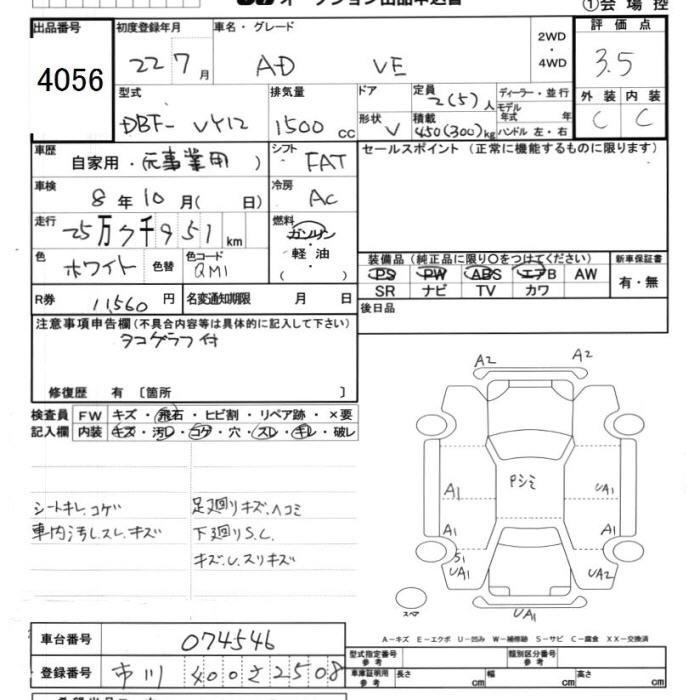 オークション出品申込書
①会場控
出品番号
4056
初度登録年月
22 7月
車名・グレード
AD VE
2WD
・
4WD
評価点
3.5
外装 内装
C C
型式
DBF-VY12
排気量
1500 cc
ドア
定員
2(5)人
形状
V
積載
450(300)kg
ディーラー・並行
モデル年式 年
ハンドル 左・右
車歴
自家用・(元事業用)
シフト
FAT
セールスポイント(正常に機能するものに限ります)
車検
8年10月( 日)
冷房
AC
走行
25万7千951km
燃料
ガソリン
・
軽油
( )
色
ホワイト
色替
色コード
QM1
装備品(純正品に限り○をつけてください)
PS PW ABS エアB AW
SR ナビ TV カワ
新車保証書
有・無
R券
11,560円
名変通知期限 月 日
後日品
注意事項申告欄(不具合内容等は具体的に記入して下さい)
タコグラフ付
修復歴 有 〔箇所 〕
検査員記入欄
FW キズ・飛石・ヒビ割・リペア跡・×要
内装 キズ・汚レ・コゲ・穴・スレ・キレ・破レ
シートキレ.コゲ
車内汚し.スレ.キズ
足廻りキズ.ヘコミ
下廻りS.C.
キズ.U.スリキズ
A2 A2
Pシミ
A1 UA1
A1 A1
S1
UA1 UA2
スペア
UA1
A-キズ E-エクボ U-凹み W-補修跡 S-サビ C-腐食 XX-交換済
車台番号
074546
登録番号
市川 400 さ 2508
型式指定番号
参考
類別区分番号
参考
車庫証明用
参考
長さ cm
幅 cm
高さ cm